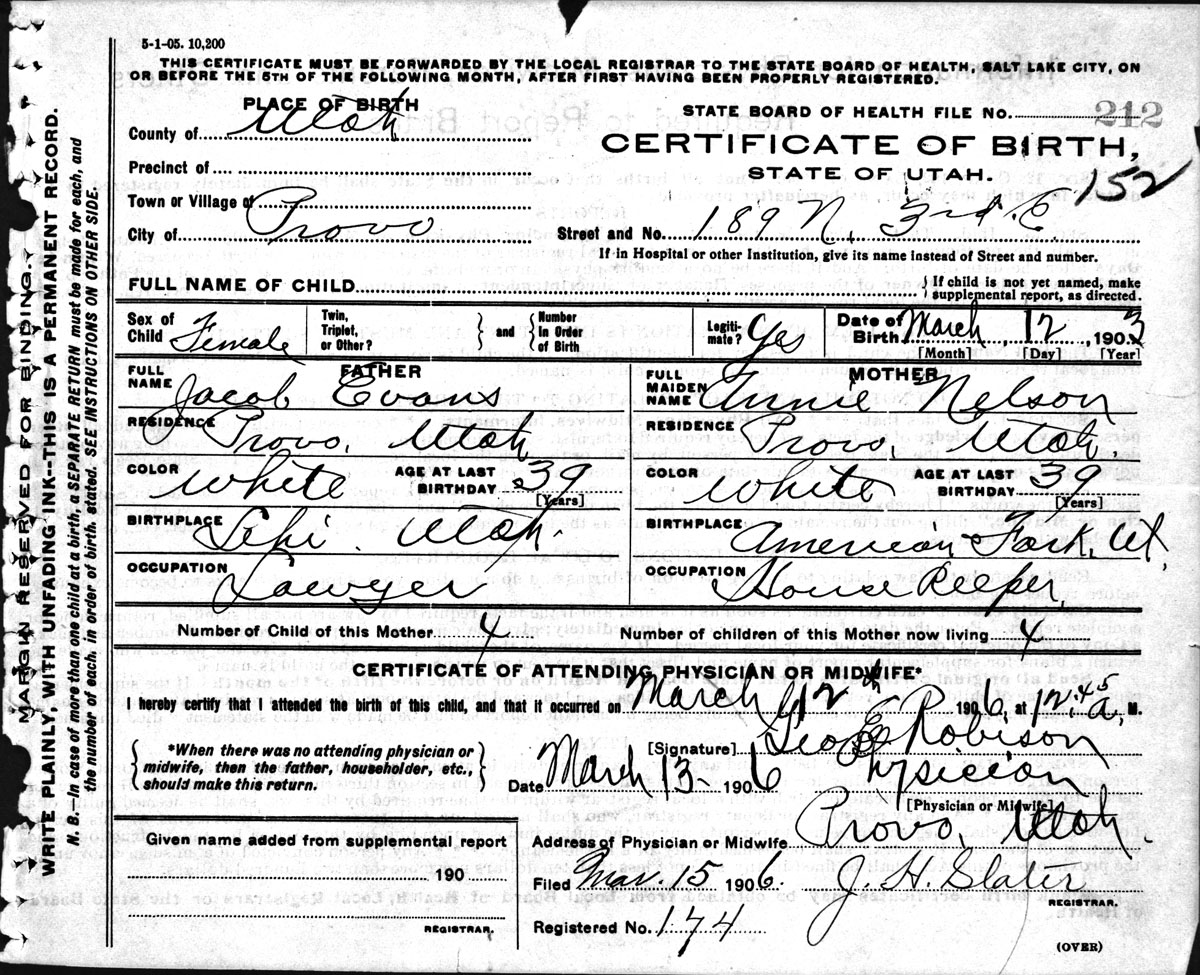 5-1-05. 10,200
THIS CERTIFICATE MUST BE FORWARDED BY THE LOCAL REGISTRAR TO THE STATE BOARD OF HEALTH, SALT LAKE CITY, ON
OR BEFORE THE 5TH OF THE FOLLOWING MONTH, AFTER FIRST HAVING BEEN PROPERLY REGISTERED.
MARGIN RESERVED FOR BINDING.
WRITE PLAINLY, WITH UNFADING INK--THIS IS A PERMANENT RECORD.
N. B.—In case of more than one child at a birth, a SEPARATE RETURN must be made for each, and
the number of each, in order of birth, stated. SEE INSTRUCTIONS ON OTHER SIDE.
PLACE OF BIRTH
County of Utah
Precinct of
Town or Village of
City of Provo
STATE BOARD OF HEALTH FILE NO. 212
CERTIFICATE OF BIRTH,
STATE OF UTAH.
152
Street and No. 189 N. 3rd E
If in Hospital or other Institution, give its name instead of Street and number.
FULL NAME OF CHILD { If child is not yet named, make
supplemental report, as directed.
Sex of Child Female
Twin, Triplet, or Other? } and { Number In Order of Birth
Legitimate? Yes
Date of Birth March, 12, 1903
[Month] [Day] [Year]
FATHER
FULL NAME Jacob Evans
RESIDENCE Provo, Utah
COLOR White AGE AT LAST BIRTHDAY 39 [Years]
BIRTHPLACE Lehi Utah.
OCCUPATION Lawyer
MOTHER
FULL MAIDEN NAME Annie Nelson
RESIDENCE Provo, Utah.
COLOR White AGE AT LAST BIRTHDAY 39 [Years]
BIRTHPLACE American Fork, Ut.
OCCUPATION House Keepr.
Number of Child of this Mother 4 Number of children of this Mother now living 4
CERTIFICATE OF ATTENDING PHYSICIAN OR MIDWIFE*
I hereby certify that I attended the birth of this child, and that it occurred on March 12th 1906, at 12:45 a. M.
{ *When there was no attending physician or
midwife, then the father, householder, etc.,
should make this return. }
[Signature] Geo E Robison
Date March 13- 1906 Physician
[Physician or Midwife]
Address of Physician or Midwife Provo, Utah.
Given name added from supplemental report
190
REGISTRAR.
Filed Mar. 15 1906. J. H. Slater
REGISTRAR.
Registered No. 174
(OVER)